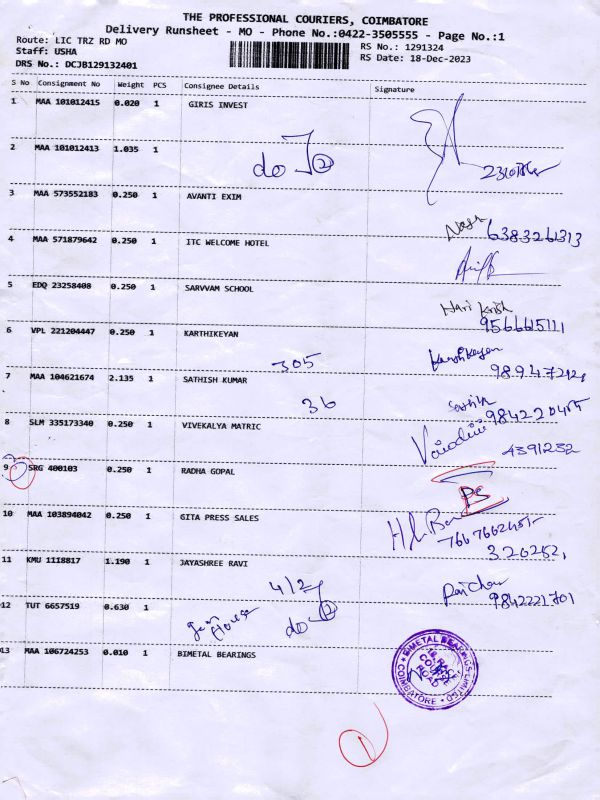 THE PROFESSIONAL COURIERS, COIMBATORE
Delivery Runsheet - MO - Phone No.:0422-3505555 - Page No.:1
Route: LIC TRZ RD MO
RS No.: 1291324
Staff: USHA
RS Date: 18-Dec-2023
DRS No.: DCJB129132401
S No Consignment No Weight PCS Consignee Details Signature
1 MAA 101012415 0.020 1 GIRIS INVEST
2 MAA 101012413 1.035 1 do 2
3 MAA 573552183 0.250 1 AVANTI EXIM
6383261313
4 MAA 571879642 0.250 1 ITC WELCOME HOTEL
5 EDQ 23258408 0.250 1 SARVVAM SCHOOL
Hari Krish
6 VPL 221204447 0.250 1 KARTHIKEYAN
305 Karthikeyan
7 MAA 104621674 2.135 1 SATHISH KUMAR
36
8 SLM 335173340 0.250 1 VIVEKALYA MATRIC
4391232
9 SRG 400103 0.250 1 RADHA GOPAL
10 MAA 103894042 0.250 1 GITA PRESS SALES
11 KMU 1118817 1.190 1 JAYASHREE RAVI
4/2
12 TUT 6657519 0.630 1 House do 2
9842221701
13 MAA 106724253 0.010 1 BIMETAL BEARINGS
BIMETAL BEARINGS LIMITED
COIMBATORE
18, RACE
COURSE
ROAD
1